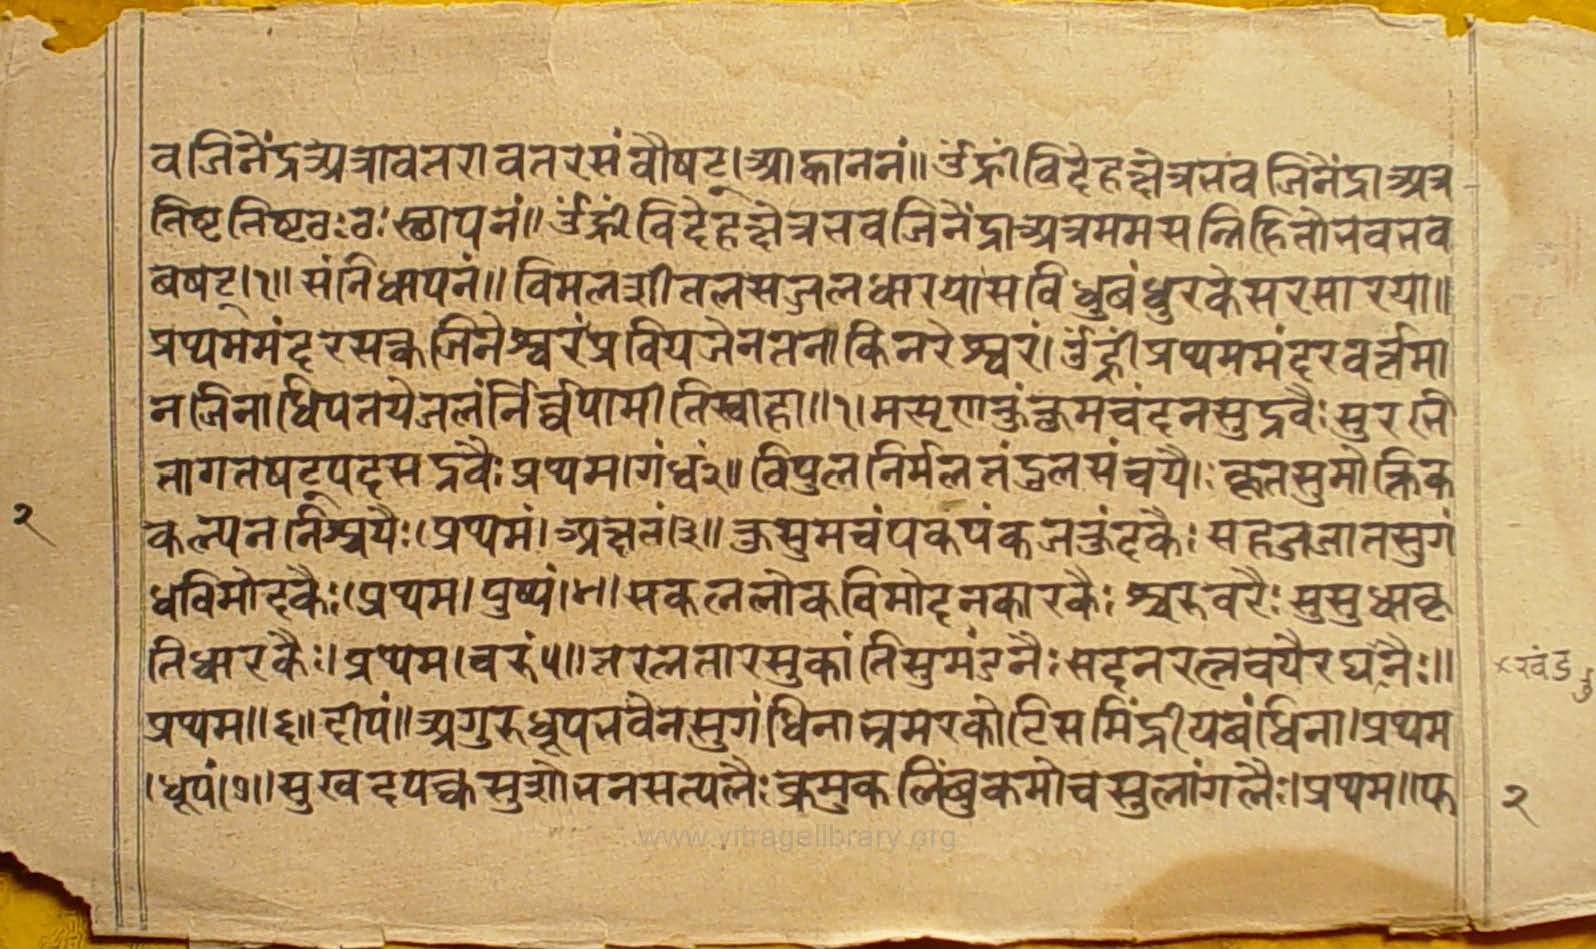 व जिनेंद्र अत्रावतरावतर संवौषट्। आह्वाननं॥ ॐ ह्रीं विदेहक्षेत्रतव जिनेंद्रा अत्र
तिष्ट तिष्ट वः वः स्छापनं॥ ॐ ह्रीं विदेहक्षेत्रतव जिनेंद्रा अत्र मम सन्निहितो नव नव
बषट्।१॥ संनिधापनं॥ विमलशीतलसज्जलधारया सविधुबंधुरकेसरसारया॥
प्रथममंदरसत्क जिनेश्वरं प्रवियजेनतनाकिनरेश्वरं। ॐ ह्रीं प्रथममंदरवर्त्तमा
न जिनाधिपतये जलं निर्व्वपामीति स्वाहा॥१। मसृणकुंकुमचंदनसुद्रवैः सुरभि
तागतषट्पदसद्रवैः प्रथम। गंधं२॥ विपुलनिर्मलतंदुलसंचयैः कृतसुमौक्तिक
कल्पननिश्चयैः। प्रथमं। अक्षतं।३॥ कुसुमचंपकपंकजकुंदकैः सहजजातसुगं
धविमोदकैः। प्रथम। पुष्पं।४। सकललोकविमोदनकारकैः श्चरुवरैः सुसुधाकृ
तिधारकैः। प्रथम। चरुं५॥ तरलतारसुकांतिसुमंडनैः सदनरत्नचयैरघनैः॥
प्रथम॥६॥ दीपं॥ अगुरुधूपनवेन सुगंधिना भ्रमरकोटिसमिंद्रीयबंधिना। प्रथम
।धूपं।७॥ सुखदपक्वसुशोभनसत्फलैः क्रमुकलिंबुकमोचसुलांगलैः। प्रथम॥ फ
२
×खंड
२
www.vitragelibrary.org